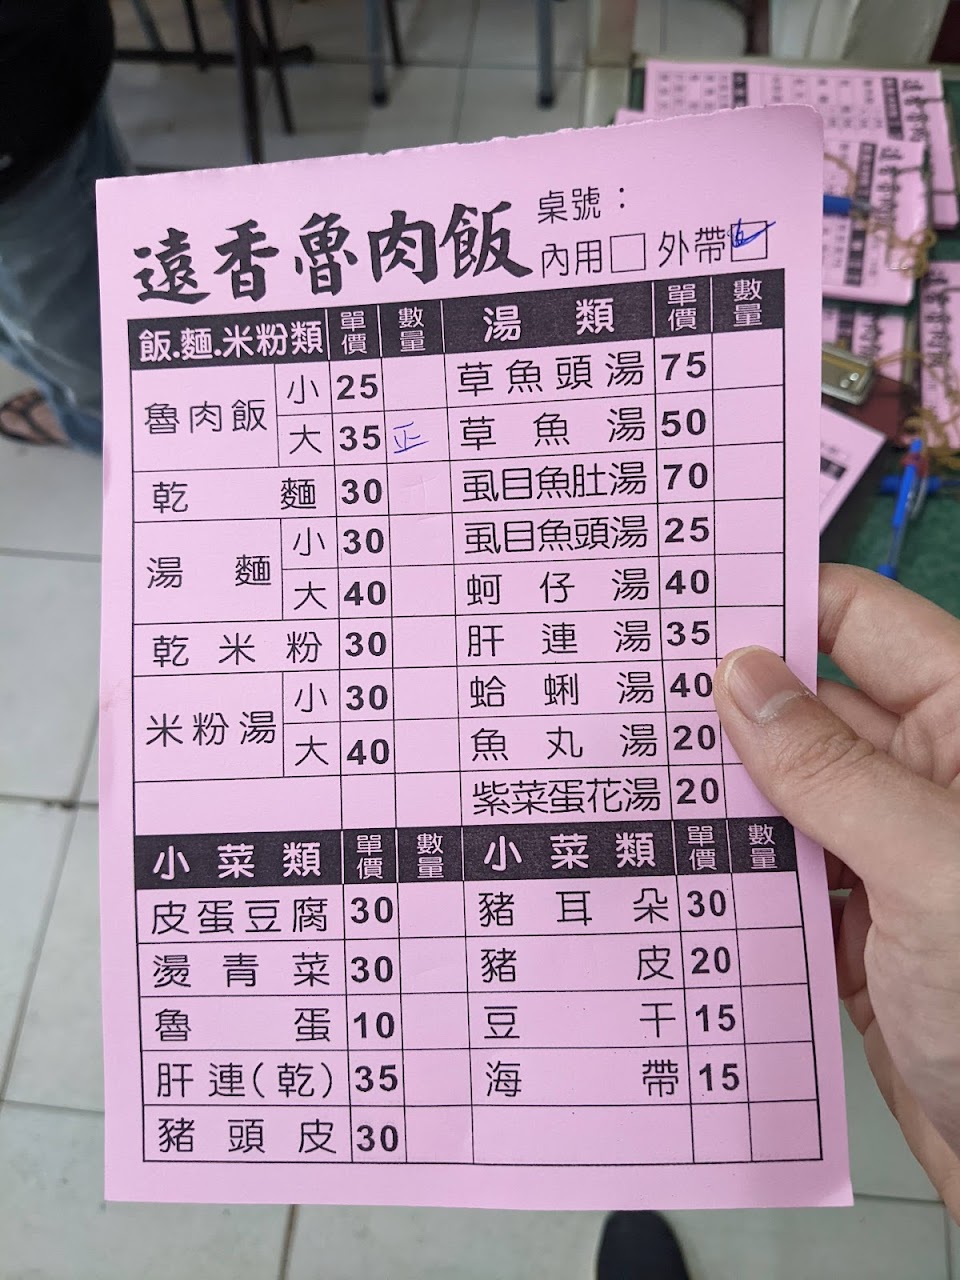 遠香魯肉飯
桌號：
內用□ 外帶□
飯.麵.米粉類 單價 數量 湯類 單價 數量
魯肉飯 小 25 草魚頭湯 75
大 35 正 草魚湯 50
乾麵 30 虱目魚肚湯 70
湯麵 小 30 虱目魚頭湯 25
大 40 蚵仔湯 40
乾米粉 30 肝連湯 35
米粉湯 小 30 蛤蜊湯 40
大 40 魚丸湯 20
紫菜蛋花湯 20
小菜類 單價 數量 小菜類 單價 數量
皮蛋豆腐 30 豬耳朵 30
燙青菜 30 豬皮 20
魯蛋 10 豆干 15
肝連(乾) 35 海帶 15
豬頭皮 30